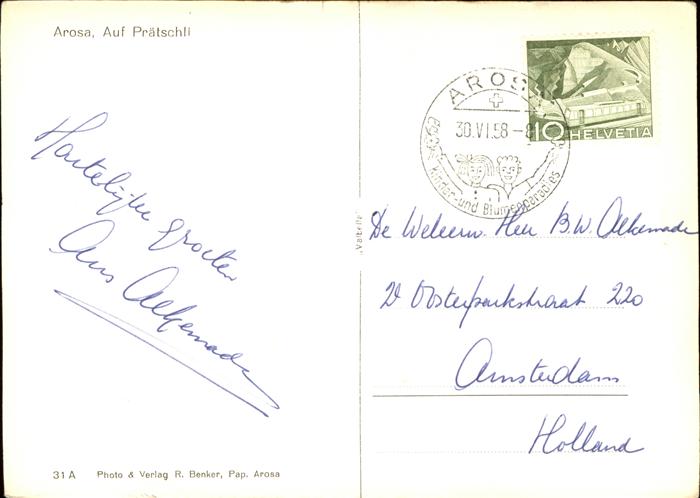 Arosa, Auf Prätschli
Hartelijke groeten
Ans Alkemade
31 A Photo & Verlag R. Benker, Pap. Arosa
AROSA
30.VI.58 - 8
Kinder- und Blumenparadies
10 HELVETIA
De Weleerw. Heer B.W. Alkemade
2e Oosterparkstraat 220
Amsterdam
Holland